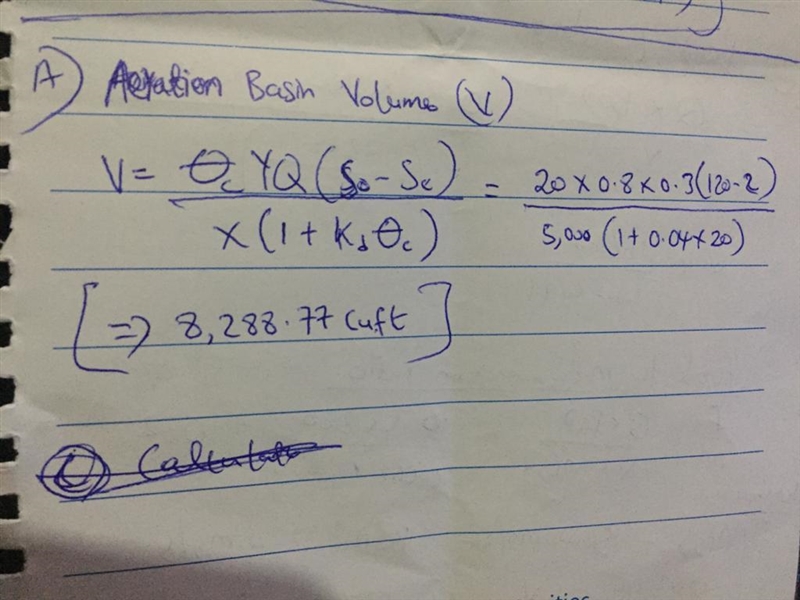 A) Aeration Basin Volume (V)
V = θc YQ (So - Se) / X (1 + Kd θc) = 20 × 0.8 × 0.3 (120 - 2) / 5,000 (1 + 0.04 × 20)
[ => 8,288.77 cuft ]
Calculate